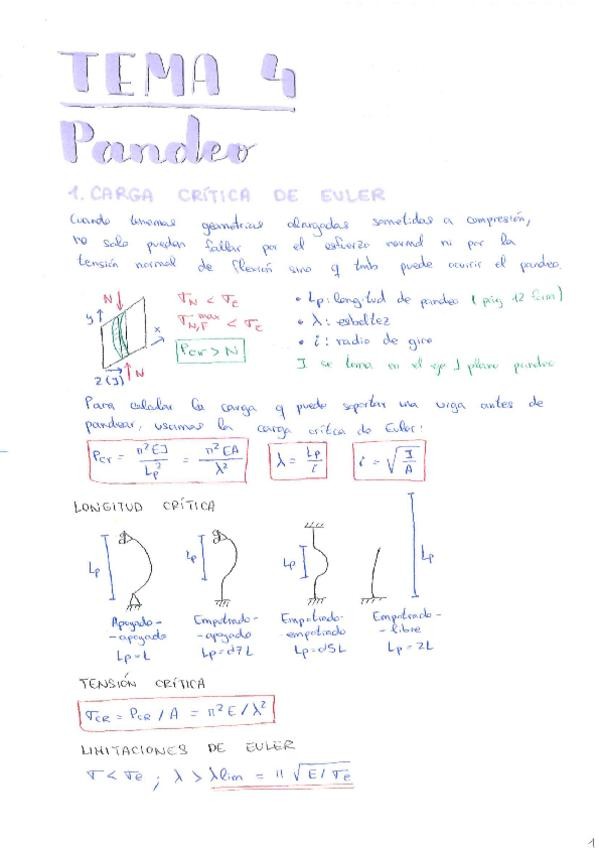 TEMA 4
Pandeo
1. CARGA CRÍTICA DE EULER
Cuando tenemos geometrías alargadas sometidas a compresión,
no solo pueden fallar por el esfuerzo normal ni por la
tensión normal de flexión sino q tmb puede ocurrir el pandeo.
N
y
x
z (I)
N
σN < σE
σN,F max < σE
PCR > N
• Lp: longitud de pandeo (pág 12 form)
• λ: esbeltez
• i: radio de giro
I se toma en el eje ⊥ plano pandeo
Para calcular la carga q puede soportar una viga antes de
pandear, usamos la carga crítica de Euler:
PCR = π²EI / Lp² = π²EA / λ²
λ = Lp / i
i = √(I / A)
LONGITUD CRÍTICA
Lp
Lp
Lp
Lp
Apoyado-
-apoyado
Lp=L
Empotrado-
-apoyado
Lp=0'7L
Empotrado-
-empotrado
Lp=0'5L
Empotrado-
-libre
Lp=2L
TENSIÓN CRÍTICA
σCR = PCR / A = π²E / λ²
LIMITACIONES DE EULER
σ < σe ; λ > λlim = π √E/σe
1